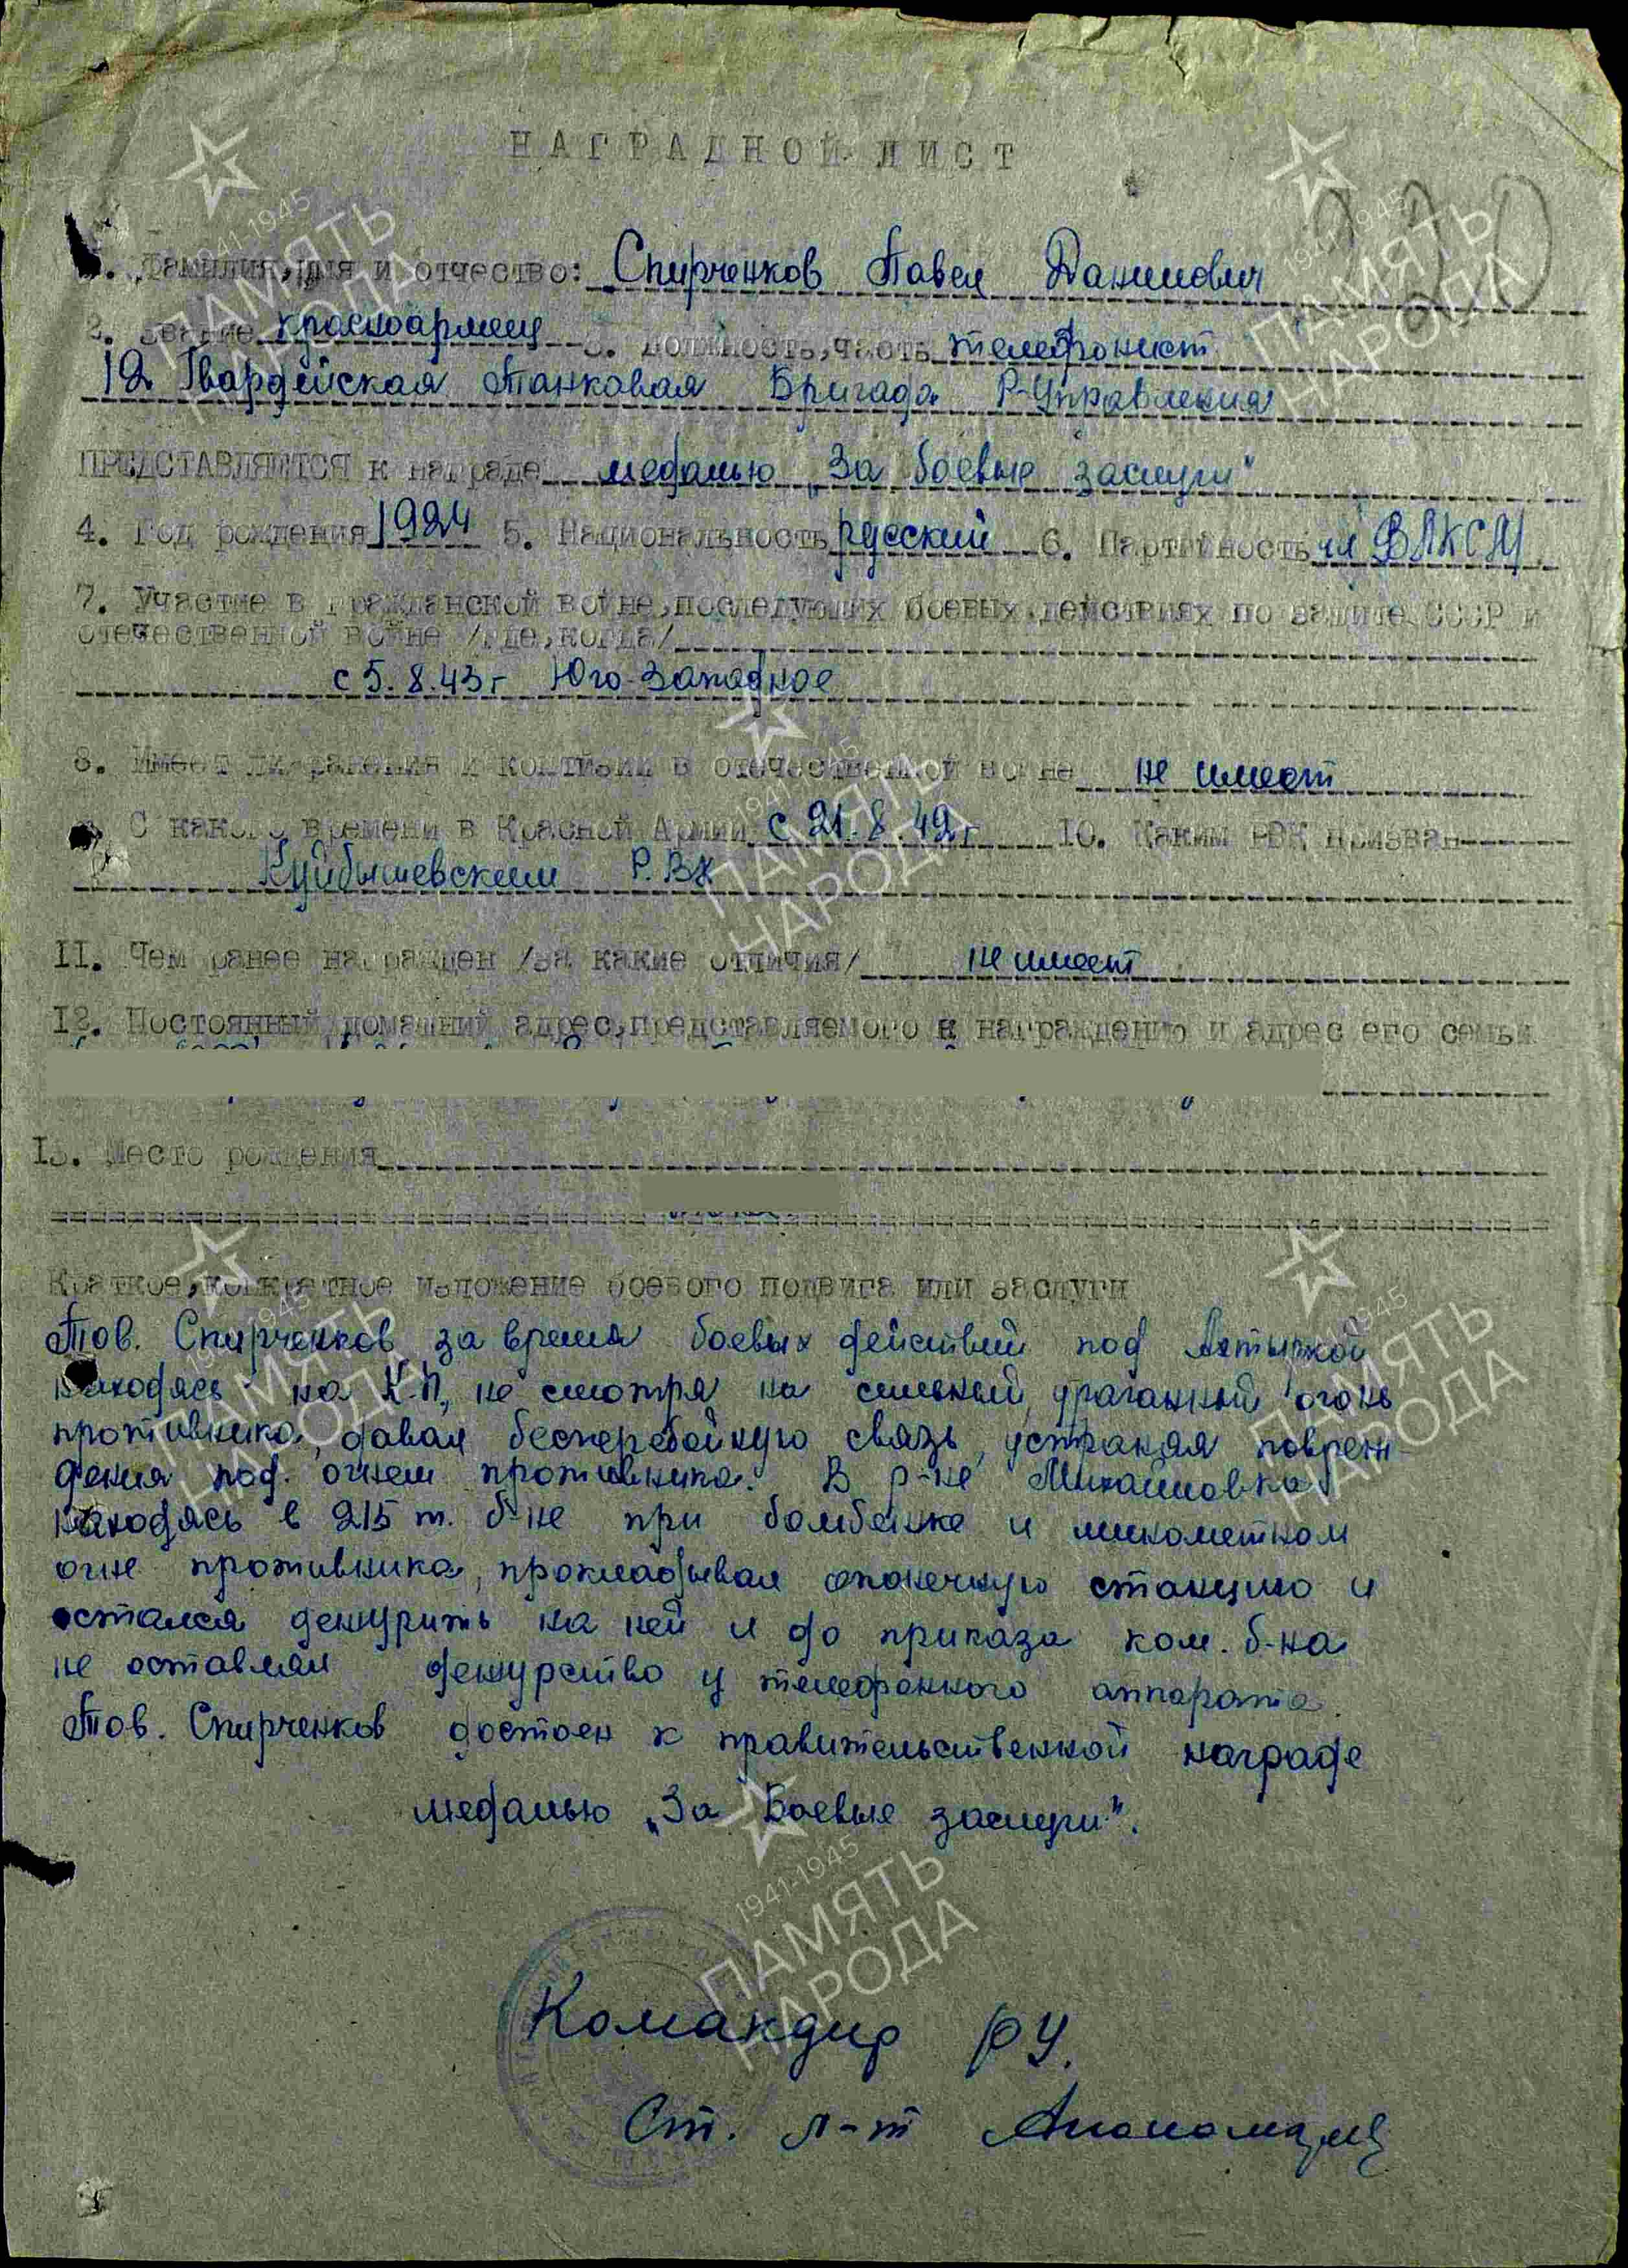 НАГРАДНОЙ ЛИСТ
1. Фамилия, имя и отчество: Спирченков Павел Данилович
2. Звание красноармеец 3. Должность, часть телефонист
12 Гвардейская Танковая Бригада Р-Управления
ПРЕДСТАВЛЯЕТСЯ к награде медалью „За боевые заслуги"
4. Год рождения 1924 5. Национальность русский 6. Партийность чл ВЛКСМ
7. Участие в гражданской войне, последующих боевых действиях по защите СССР и
отечественной войне /где, когда/
с 5.8.43г Юго-Западное
8. Имеет ли ранения и контузии в отечественной войне не имеет
С какого времени в Красной Армии с 21.8.42г 10. Каким РВК призван
Куйбышевским Р.ВК
11. Чем ранее награжден /за какие отличия/ не имеет
12. Постоянный домашний адрес, представляемого к награждению и адрес его семьи
13. Место рождения
Краткое, конкретное изложение боевого подвига или заслуги
Тов. Спирченков за время боевых действий под Ахтыркой
находясь на К.П., не смотря на сильный, ураганный огонь
противника, давал бесперебойную связь, устраняя повреж-
дения под огнем противника. В р-не Михайловка
находясь в 215 т. б-не при бомбежке и минометном
огне противника, прокладывал оконечную станцию и
остался дежурить на ней и до приказа ком. б-на
не оставлял дежурство у телефонного аппарата.
Тов. Спирченков достоен к правительственной награде
медалью „За Боевые заслуги".
Командир РУ.
Ст. л-т
1941-1945
ПАМЯТЬ
НАРОДА